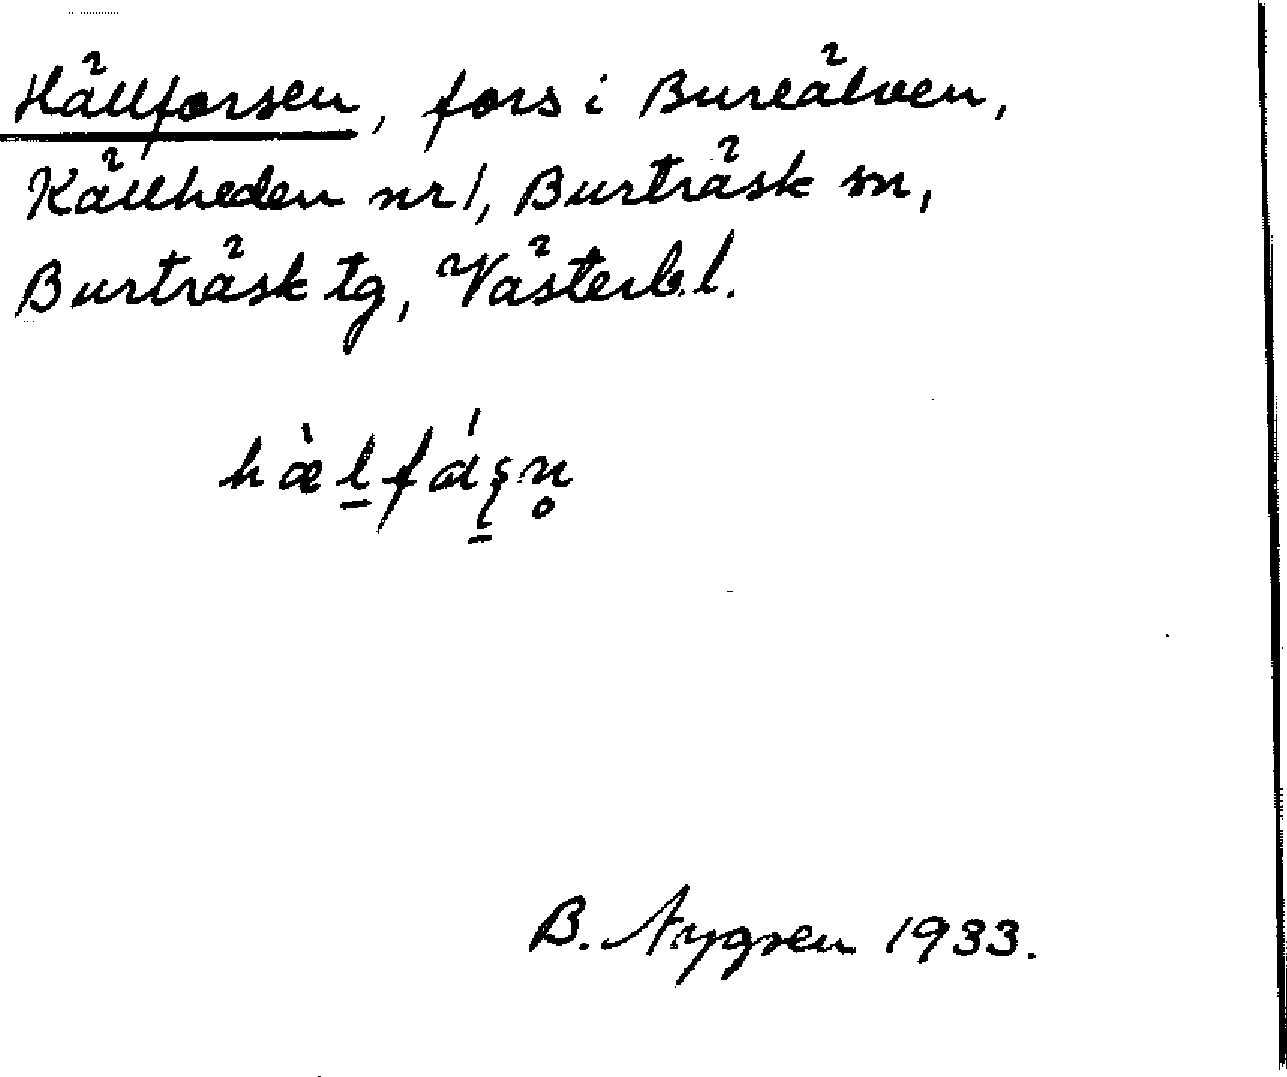 Hällforsen, fors i Bureälven,
Källheden nr 1, Burträsk sn,
Burträsk tg, Västerb.l.
hæ̀l̠fáʂn̥
B. Nygren 1933.